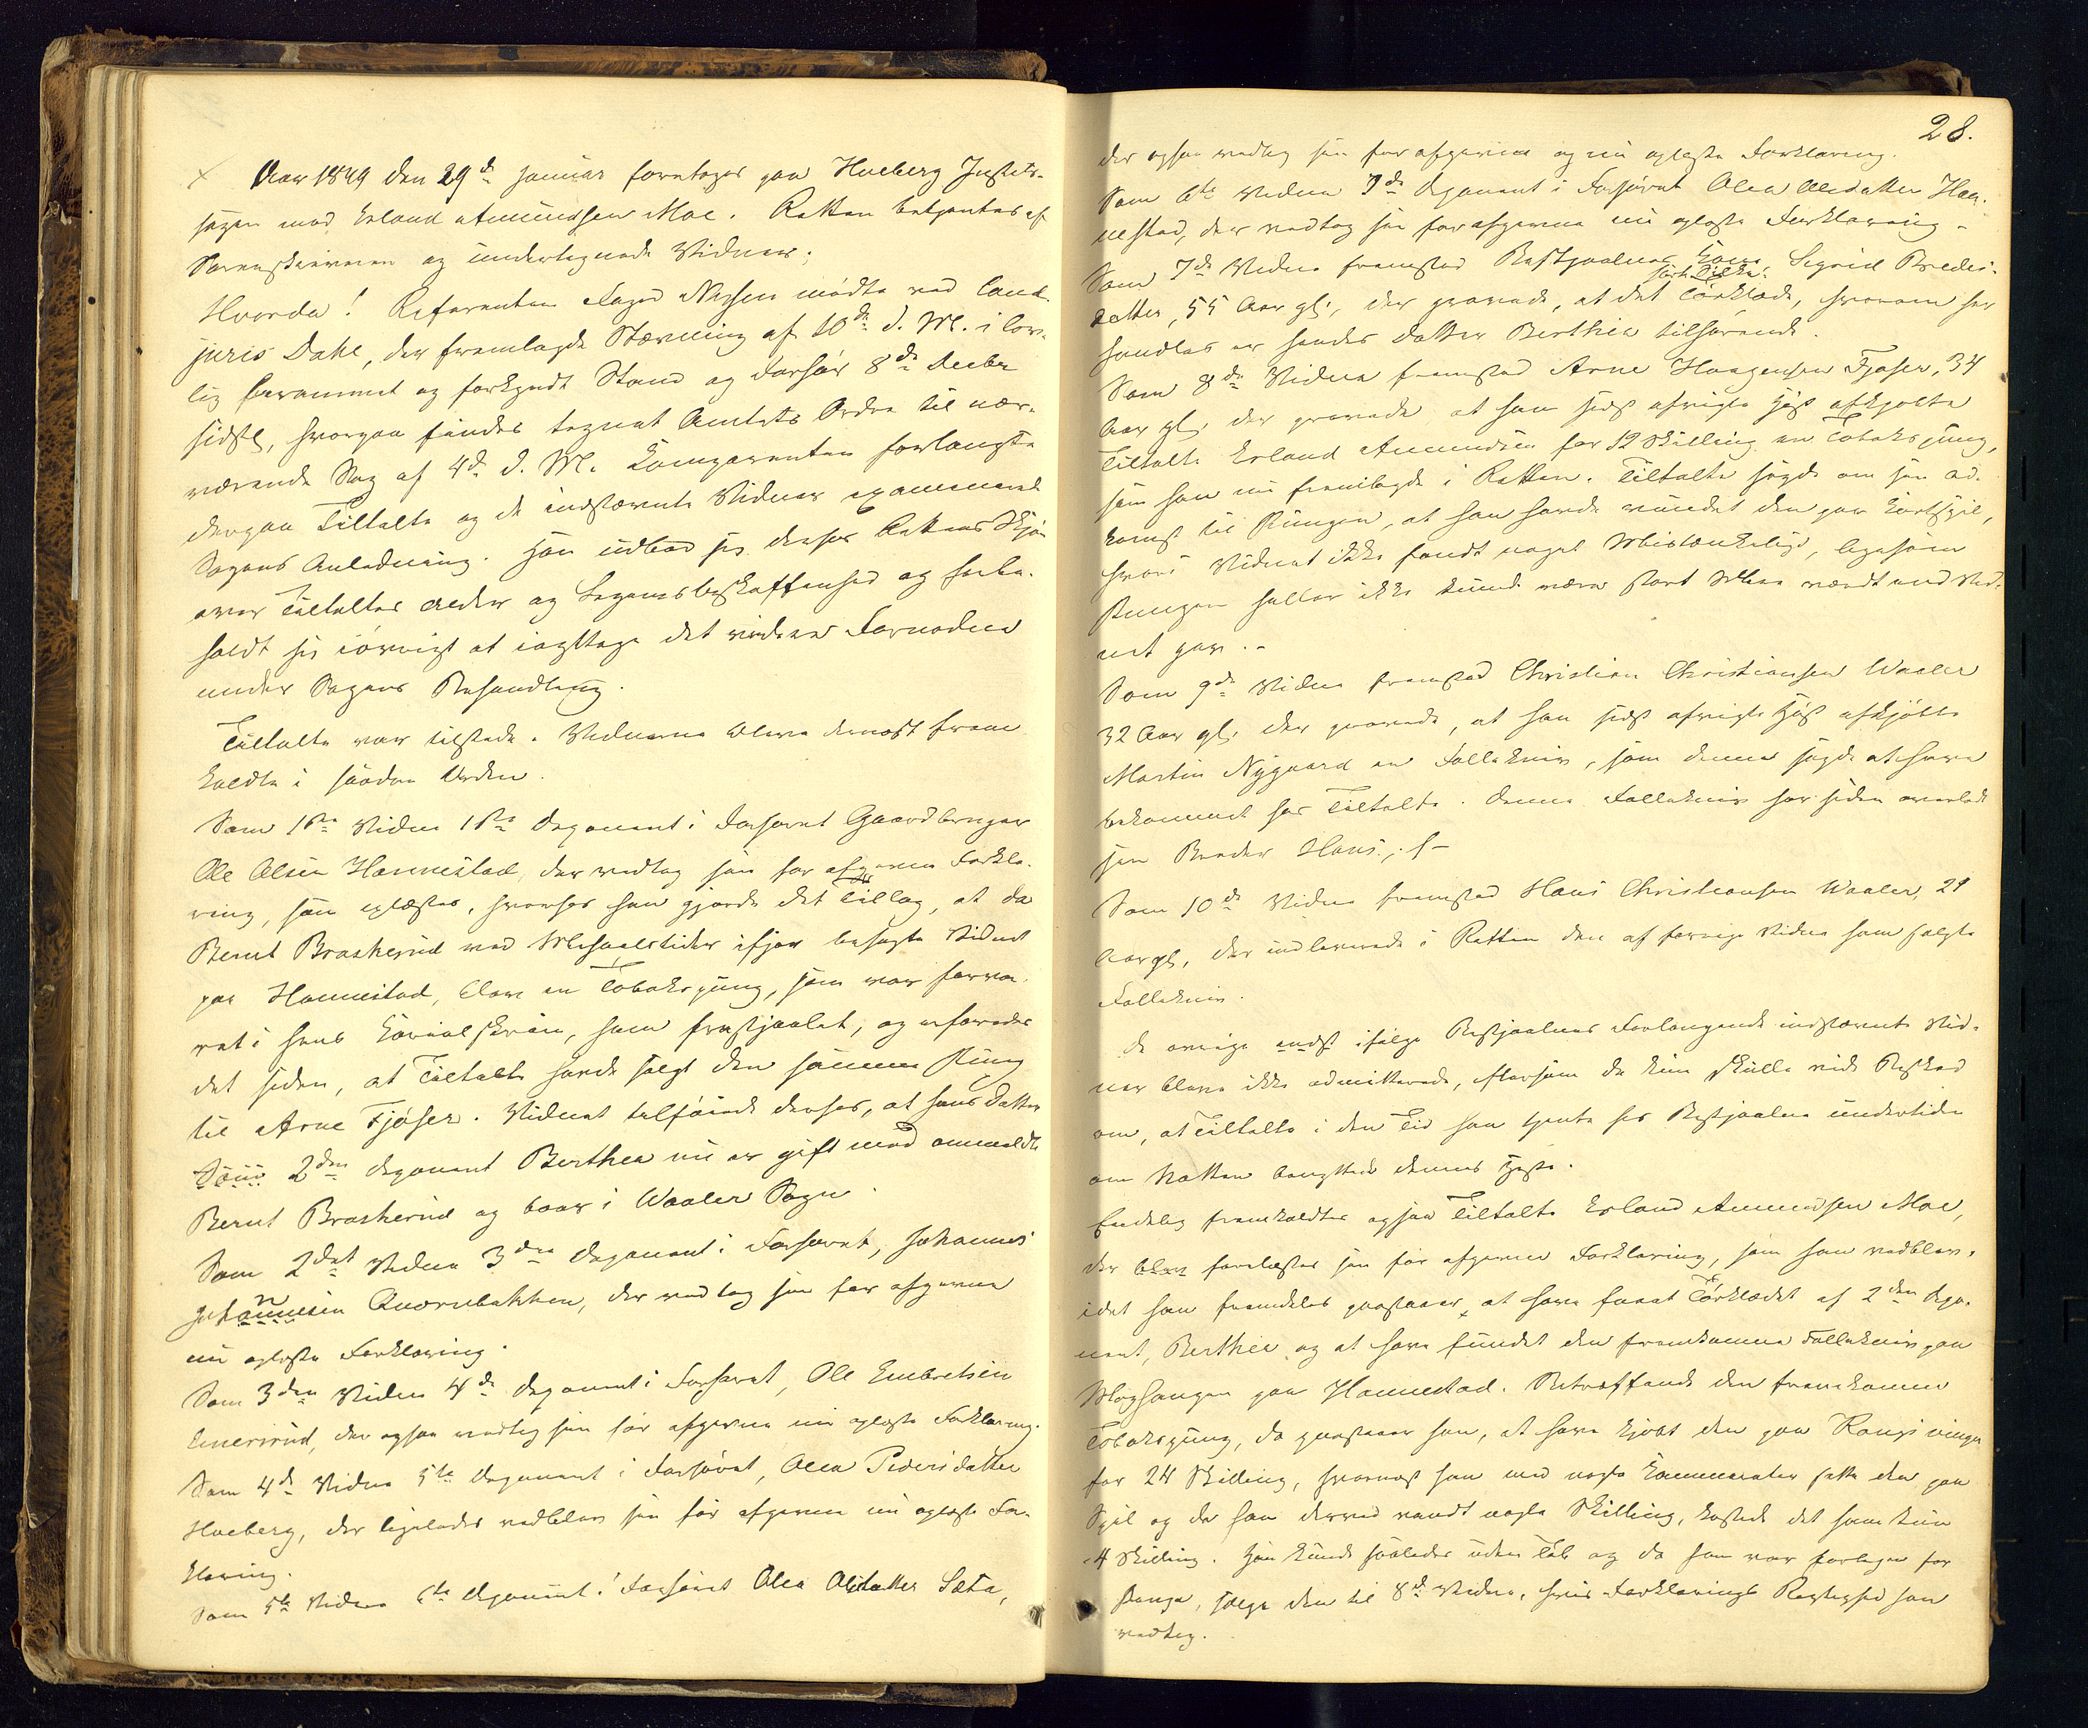 Aar 1849 den 29de Januar foretoges paa Hveberg Justits-
sagen mod Erland Amundsen Moe. Retten betjentes af
Sorenskriveren og undertegnede Vidner;
Hvorda! Referenten Foged Nysen mødte ved Cand.
juris Dahl, der fremlagde Stævning af 10de d. M. i lov-
lig berammet og forkyndt Stand og Forhør 8de Decbr
sidstl, hvorpaa findes tegnet Amtets Ordre til nær-
værende Sag af 4de d. M. Comparenten forlangte
derpaa Tiltalte og de indstævnte Vidner examineret
Sagens Anledning. Han udbad sig derhos Rettens Skjøn
over Tiltaltes Alder og Legemsbeskaffenhed og forbe-
holdt sig iøvrigt at iagttage det videre Fornødne
under Sagens Behandling.
Tiltalte var tilstede. Vidnerne bleve dernæst frem
kaldte i saadan Orden.
Som 1ste Vidne 1ste Deponent i Forhøret Gaardbruger
Ole Olsen Hannestad, der vedtog sin før afgivne Forkla-
ring, som oplæstes, hvorhos han gjorde det Tillæg, at da
Bernt Braskerud ved Mikaelstider ifjor besøgte Vidnet
paa Hannestad, blev en Tobakspung, som var forva-
ret i hans, ham frastjaalet, og erfarede
det siden, at Tiltalte havde solgt den samme Pung
til Arne Fjøser. Vidnet tilføiede derhos, at hans Datter
Som 2den Deponent Berthea nu er gift med anmeldte
Bernt Braskerud og boer i Waaler Sogn.
Som 2det Vidne 3die Deponent i Forhøret, Johannes
Johannesen Qværnbakken, der vedtog sin før afgivne
nu oplæste Forklaring.
Som 3die Vidne 4de Deponent i Forhøret, Ole Embretsen
Enersrud, der ogsaa vedtog sin før afgivne nu oplæste Forklaring.
Som 4de Vidne 5te Deponent i Forhøret, Olea Pedersdatter
Hveberg, der ligeledes vedblev sin før afgivne nu oplæste For-
klaring.
Som 5te Vidne 6te Deponent i Forhøret Olea Olsdatter Sæta,
28.
der ogsaa vedtog sin før afgivne og nu oplæste Forklaring.
Som 6te Vidne 7de Deponent i Forhøret Olea Olsdatter Han-
nestad, der vedtog sin før afgivne nu oplæste Forklaring.
Som 7de Vidne fremstod Bestjaalnes Kone Sigrid Breders-
datter, 55 Aar gl, der provede, at det Tørklæde, hvorom her
handles er hendes Datter Berthea tilhørende.
Som 8de Vidne fremstod Arne Haagensen Fjøser, 34
Aar gl, der provede at han sidst afvigte Høst afkjøbte
Tiltalte Erland Amundsen for 12 Skilling en Tobakspung,
som han nu fremlagde i Retten. Tiltalte sagde om sin Ad-
komst til Pungen, at han havde vundet den paa Kortspil,
hvori Vidnet ikke fandt noget Mistænkeligt, ligesom
Pungen heller ikke kunde være stort Mere værdt end Vid-
net gav.
Som 9de Vidne fremstod Christian Christiansen Waaler
32 Aar gl, der provede, at han sidst afvigte Høst afkjøbte
Martin Nygaard en Follekniv, som denne sagde at have
bekommet hos Tiltalte. Denne Follekniv har siden overladt
sin Broder Hans.
Som 10de Vidne fremstod Hans Christiansen Waaler, 21
Aar gl, der indleverede i Retten den af forrige Vidne ham solgte
Follekniv.
De øvrige ifølge Bestjaalnes Forlangende indstævnte Vid-
ner bleve ikke admitterede, eftersom de kun skulle vide Besked
om, at Tiltalte i den Tid han tjente hos Bestjaalne undertiden
om Natten benyttede dennes Heste.
Endelig fremkaldtes ogsaa Tiltalte Erland Amundsen Moe,
der blev forelæst sin før afgivne Forklaring, som han vedblev,
idet han fremdeles paastaaer, at have faaet Tørklædet af 2den Depo-
nent, Berthea, og at have fundet den fremkomne Follekniv paa
paa Hannestad. Betræffende den fremkomne
Tobakspung, da paastaaer han, at have kjøbt den paa Kongsvinger
for 24 Skilling, hvornæst han med nogle Kammerater satte den paa
Spil og da han derved vandt nogle Skilling, kostede det ham kun
4 Skilling. Han kunde saaledes uden Tab og da han var forlegen for
Penge, sælge den til 8de Vidne, hvis Forklarings Rigtighed han
vedtog.